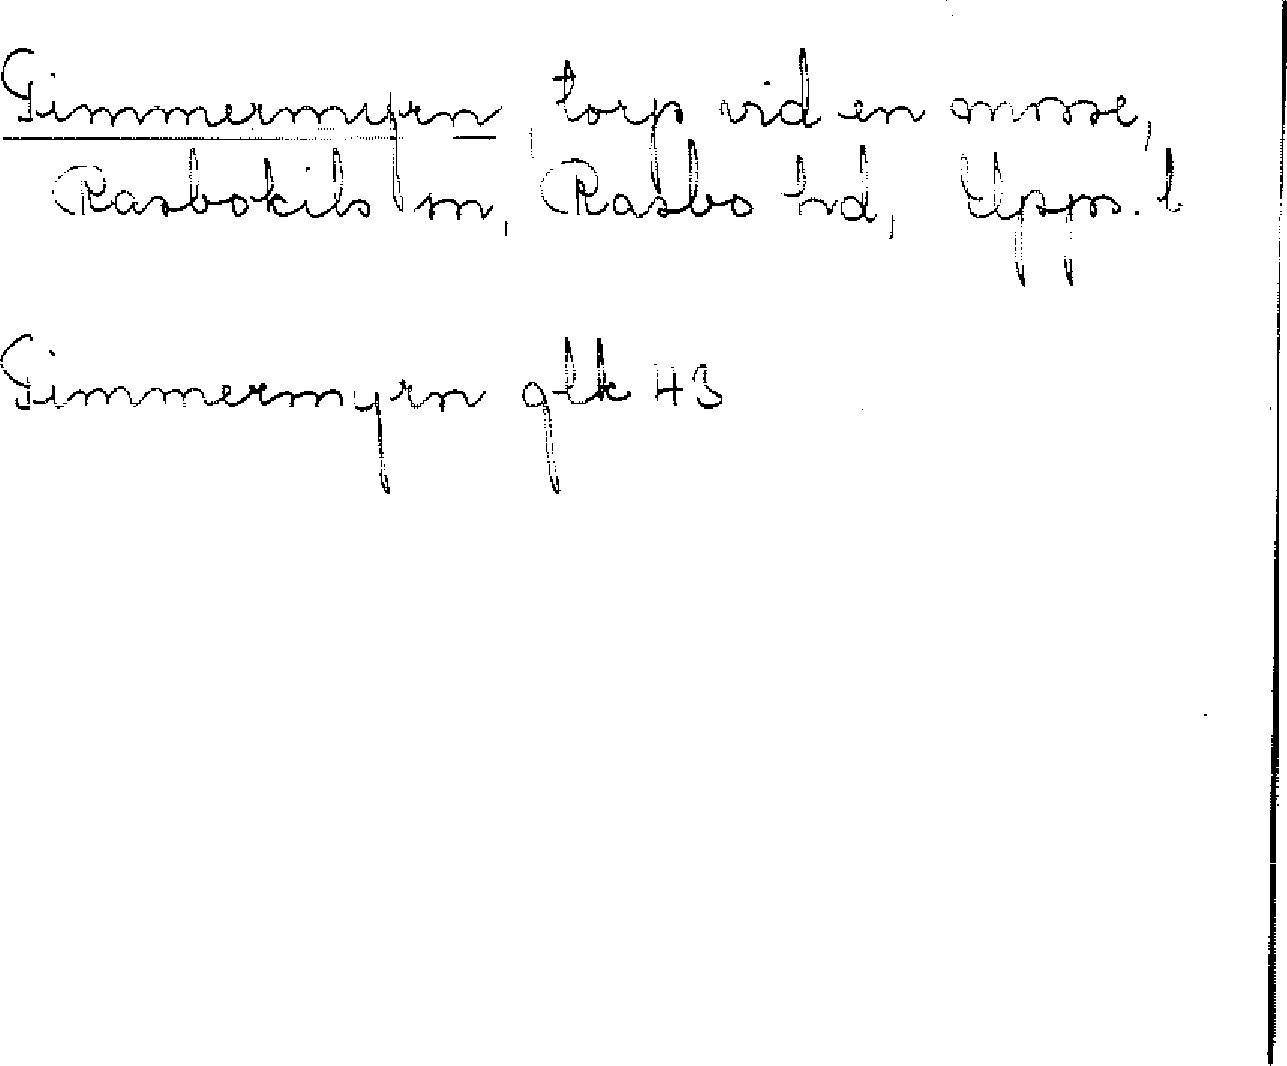 Timmermyrn, torp vid en mosse,
Rasbokils sn, Rasbo hd, Upps. l
Timmermyrn glk 43